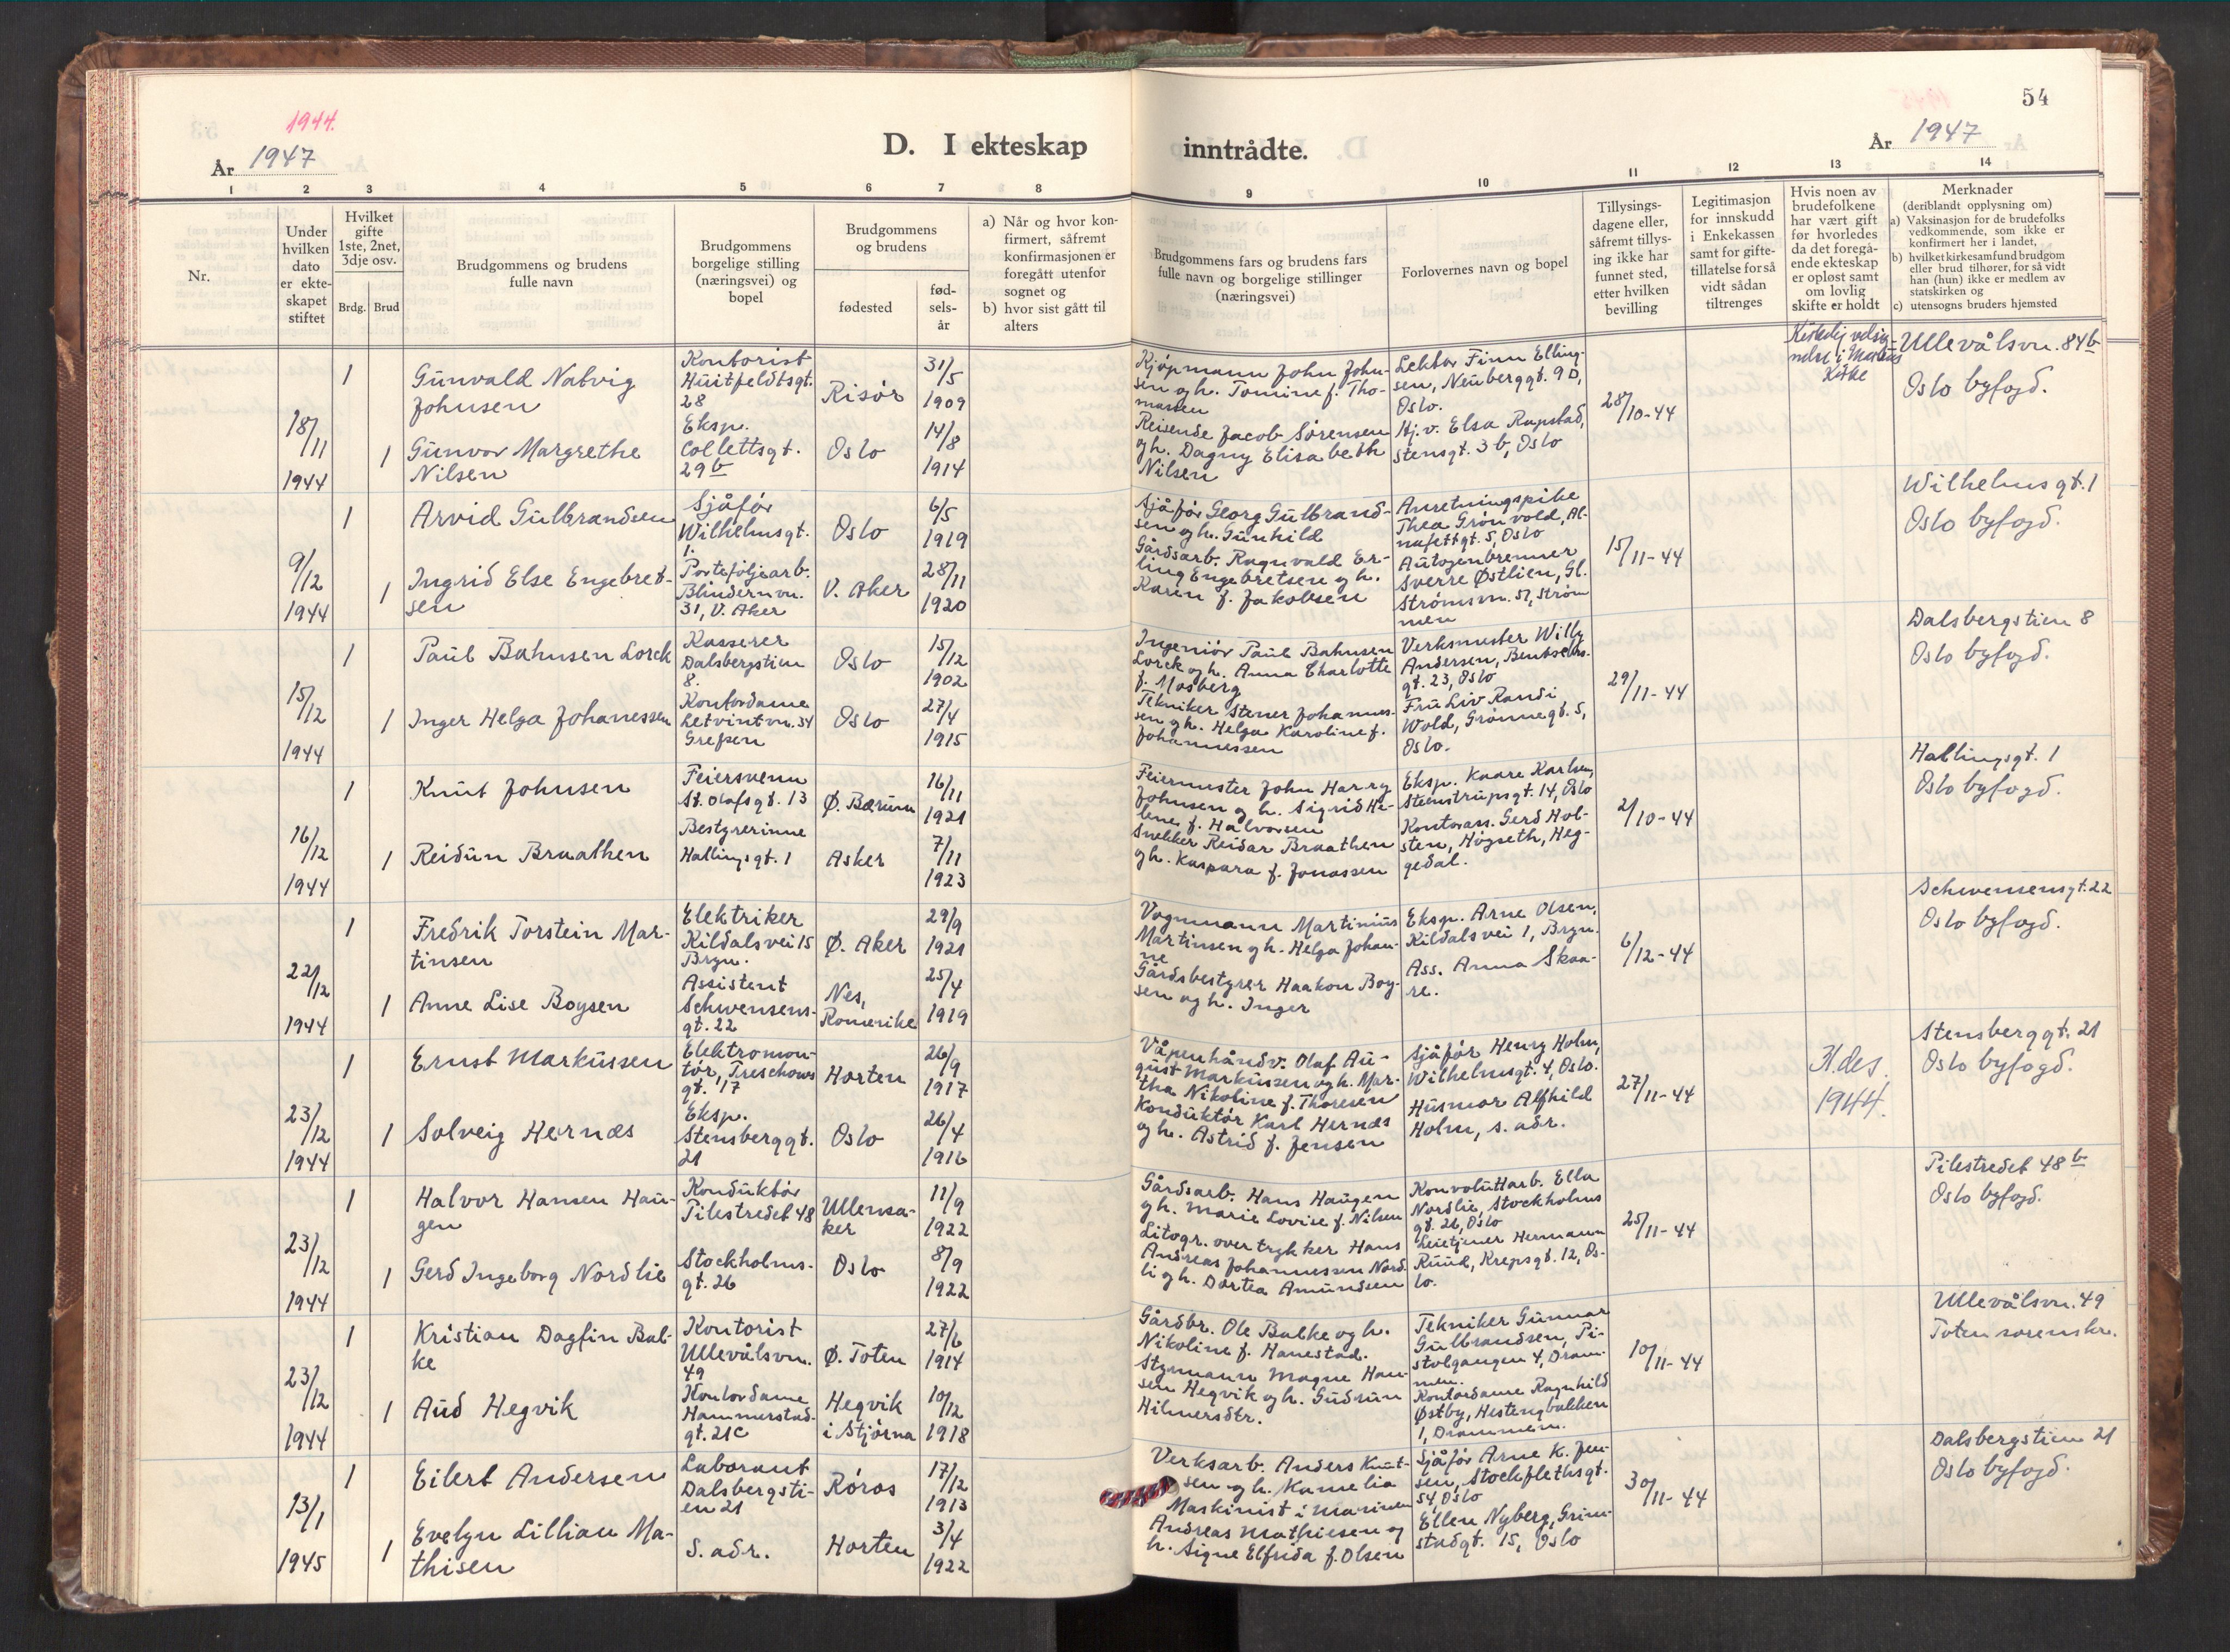 1944.
År 1947
D. I ekteskap
inntrådte.
54
År 1947
1 2 3 4 5 6 7 8
9 10 11 12 13 14
Nr.
Under
hvilken
dato
er ekte-
skapet
stiftet
Hvilket
gifte
1ste, 2net,
3dje osv.
Brdg. Brud
Brudgommens og brudens
fulle navn
Brudgommens
borgelige stilling
(næringsvei) og
bopel
Brudgommens
og brudens
fødested
fød-
sels-
år
a) Når og hvor kon-
firmert, såfremt
konfirmasjonen er
foregått utenfor
sognet og
b) hvor sist gått til
alters
Brudgommens fars og brudens fars
fulle navn og borgelige stillinger
(næringsvei)
Forlovernes navn og bopel
Tillysings-
dagene eller,
såfremt tillys-
ing ikke har
funnet sted,
etter hvilken
bevilling
Legitimasjon
for innskudd
i Enkekassen
samt for gifte-
tillatelse for så
vidt sådan
tiltrenges
Hvis noen av
brudefolkene
har vært gift
før hvorledes
da det foregå-
ende ekteskap
er opløst samt
om lovlig
skifte er holdt
Merknader
(deriblandt opplysning om)
a) Vaksinasjon for de brudefolks
vedkommende, som ikke er
konfirmert her i landet,
b) hvilket kirkesamfund brudgom
eller brud tilhører, for så vidt
han (hun) ikke er medlem av
statskirken og
c) utensogns bruders hjemsted
18/11
1944
1
Gunvald Natvig
Johnsen
Kontorist
Huitfeldtsgt.
28
Risør
31/5
1909
Kjøpmann John John-
sen og h. Tomine f. Tho-
massen
Lektor Finn Elling-
sen, Neuberggt. 9 D,
Oslo.
28/10-44
Kirkelig velsig-
nelse i Markus
Kirke
Ullevålsvn. 84b
Oslo byfogd.
1
Gunvor Margrethe
Nilsen
Eksp.
Collettsgt.
29b
Oslo
14/8
1914
Reisende Jacob Sørensen
og h. Dagny Elisabeth
Nilsen
Hj.v. Elsa Rupstad,
Stensgt. 3 b, Oslo
9/12
1944
1
Arvid Gulbrandsen
Sjåfør
Wilhelmsgt.
1.
Oslo
6/5
1919
Sjåfør Georg Gulbrand-
sen og h. Gunhild
Anretningspike
Thea Grønvold, Al-
nafettgt. 5, Oslo
15/11-44
Wilhelmsgt. 1
Oslo byfogd.
1
Ingrid Else Engebret-
sen
Porteføljearb.
Blindernvn.
31, V. Aker
V. Aker
28/11
1920
Gårdsarb. Ragnvald Er-
ling Engebretsen og h.
Karen f. Jakobsen
Autogenbrenner
Sverre Østlien, Gl.
Strømsvn. 57, Strøm
men
15/12
1944
1
Paul Bahnsen Lorck
Kasserer
Dalsbergstien
8.
Oslo
15/12
1902
Ingeniør Paul Bahnsen
Lorck og h. Anna Charlotte
f. Mosberg
Verksmester Willy
Andersen, Bentsebrs-
gt. 23, Oslo
29/11-44
Dalsbergstien 8
Oslo byfogd.
1
Inger Helga Johanessen
Kontordame
Letvintvn. 34
Grefsen
Oslo
27/4
1915
Tekniker Stener Johannes-
sen og h. Helga Karoline f.
Johannessen
Fru Liv Randi
Wold, Grønnegt. 5,
Oslo.
16/12
1944
1
Knut Johnsen
Feiersvenn
St. Olafsgt. 13
Ø. Bærum
16/11
1921
Feiermester John Harry
Johnsen og h. Sigrid He-
lene f. Halvorsen
Eksp. Kaare Karlsen,
Steenstrupsgt. 14, Oslo
2/10-44
Hallingsgt. 1
Oslo byfogd.
1
Reidun Braathen
Bestyrerinne
Hallingsgt. 1
Asker
7/11
1923
Snekker Reidar Braathen
og h. Kaspara f. Jonassen
Kontorass. Gerd Hol-
sten, Høgseth, Heg-
gedal.
22/12
1944
1
Fredrik Torstein Mar-
tinsen
Elektriker
Kildalsvei 15
Bryn.
Ø. Aker
29/9
1921
Vognmann Martinius
Martinsen og h. Helga Johan-
ne
Eksp. Arne Olsen,
Kildalsvei 1, Bryn.
6/12-44
Schwensensgt. 22
Oslo byfogd.
1
Anne Lise Boysen
Assistent
Schwensens-
gt. 22
Nes,
Romerike
25/4
1919
Gårdsbestyrer Haakon Boy-
sen og h. Inger
Ass. Anna Skaa-
re.
23/12
1944
1
Ernst Markussen
Elektromon-
tør, Treschows
gt. 17
Horten
26/9
1917
Våpenhåndv. Olaf Au-
gust Markussen og h. Mar-
tha Nikoline f. Thoresen
Sjåfør Henry Holm,
Wilhelmsgt. 4, Oslo.
27/11-44
31. des.
1944.
Stensberggt. 21
Oslo byfogd.
1
Solveig Hernæs
Eksp.
Stensberggt.
21
Oslo
26/4
1916
Konduktør Karl Hernæs
og h. Astrid f. Jensen
Husmor Alfhild
Holm, s. adr.
23/12
1944
1
Halvor Hansen Hau-
gen
Konduktør
Pilestredet 48
Ullensa-
ker
11/9
1922
Gårdsarb. Hans Haugen
og h. Marie Lovise f. Nilsen
Konvoluttarb. Ella
Nordlie, Stockholms
gt. 26, Oslo
25/11-44
Pilestredet 48 b
Oslo byfogd.
1
Gerd Ingeborg Nordlie
Stockholms-
gt. 26
Oslo
8/9
1922
Litogr. overtrykker Hans
Andreas Johannessen Nord-
li og h. Dortea Amundsen
Leietjener Hermann
Ruud, Krepsgt. 12, Os-
lo.
23/12
1944
1
Kristian Dagfin Bal-
ke
Kontorist
Ullevålsvn.
49
Ø. Toten
27/6
1914
Gårdbr. Ole Balke og h.
Nikoline f. Hanestad.
Tekniker Gunnar
Gulbrandsen, Pi-
stolgangen 4, Dram-
men.
10/11-44
Ullevålsvn. 49
Toten sorenskr.
1
Aud Hegvik
Kontordame
Hammerstad-
gt. 21c
Hegvik
i Stjørna
10/12
1918
Styrmann Magne Han-
sen Hegvik og h. Gudrun
Hilmersdtr.
Kontordame Ragnhild
Østby, Hestengbakken
1, Drammen.
13/1
1945
1
Eilert Andersen
Laborant
Dalsbergsti-
en 21
Røros
17/12
1913
Verksarb. Anders Knut-
sen og h. Kamelia
Sjåfør Arne K. Jen-
sen, Stockflethsgt.
54, Oslo
30/11-44
Dalsbergstien 21
Oslo byfogd.
1
Evelyn Lillian Ma-
thisen
S. adr.
Horten
3/4
1922
Maskinist i Marinen
Andreas Mathiesen og
h. Signe Elfrida f. Olsen
Ellen Nyberg, Grim-
stadgt. 15, Oslo